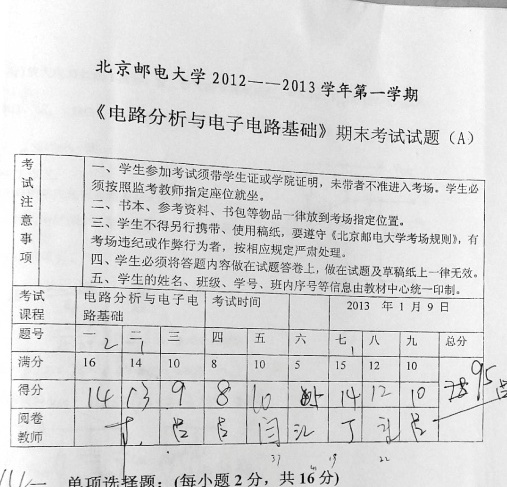 北京邮电大学 2012——2013 学年第一学期
《电路分析与电子电路基础》期末考试试题（A）
考试注意事项
一、学生参加考试须带学生证或学院证明，未带者不准进入考场。学生必
须按照监考教师指定座位就坐。
二、书本、参考资料、书包等物品一律放到考场指定位置。
三、学生不得另行携带、使用稿纸，要遵守《北京邮电大学考场规则》，有
考场违纪或作弊行为者，按相应规定严肃处理。
四、学生必须将答题内容做在试题答卷上，做在试题及草稿纸上一律无效。
五、学生的姓名、班级、学号、班内序号等信息由教材中心统一印制。
考试课程 电路分析与电子电路基础 考试时间 2013 年 1 月 9 日
题号 一 二 三 四 五 六 七 八 九 总分
满分 16 14 10 8 10 5 15 12 10
得分 14 13 9 8 10 14 12 10 95
阅卷教师
一 单项选择题：(每小题 2 分，共 16 分)